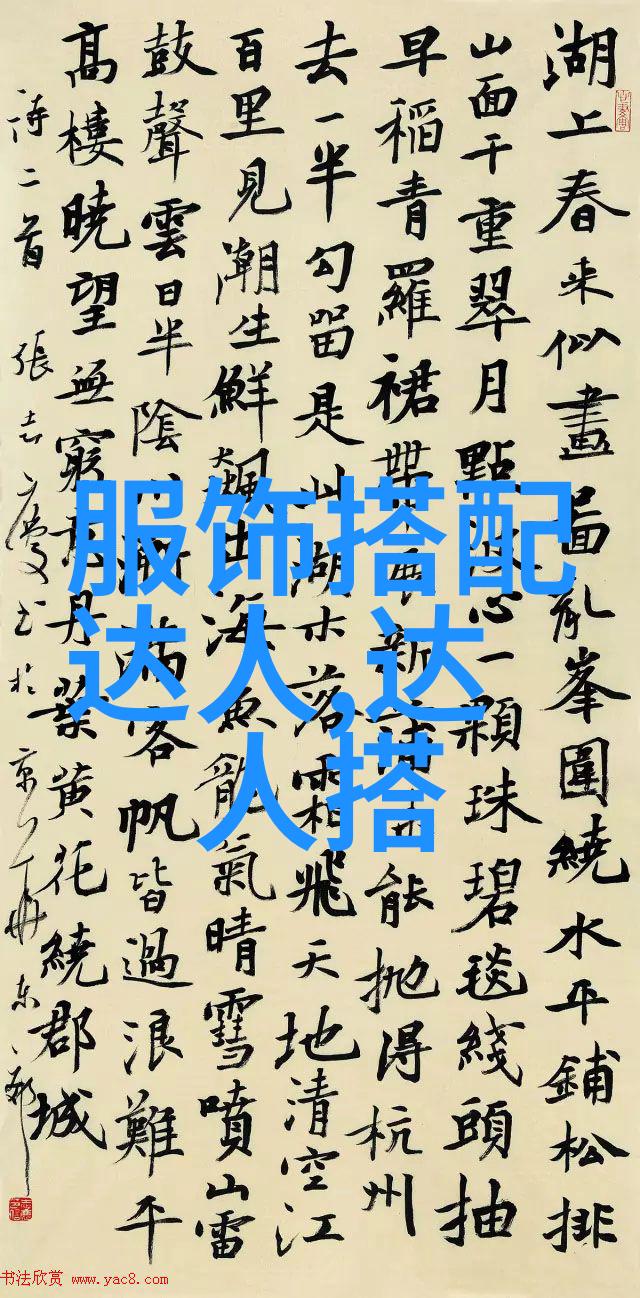 湖上春来似畫啚亂峯圍繞水平鋪松排
山面千重翠月點波心一顆珠碧毯綫頭抽
早稻青羅裙帶展新蒲未能抛得杭州
去一半勾留是此湖木落霜飛天地清空江
百里見潮生鮮飈出海魚龍氣晴雪噴山雷
鼓聲雲日半陰川漸滿客帆皆過浪難平
高樓曉望無窮意丹葉黄花繞郡城
詩二首 張志慶书於京
服饰搭配
达人,达
人搭
书法欣赏 www.yac8.com